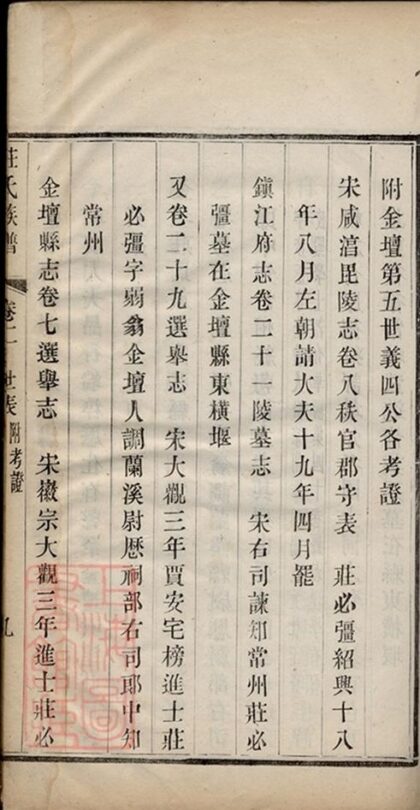 附金壇第五世義四公各考證
宋咸湻毘陵志卷八秩官郡守表　莊必彊紹興十八
年八月左朝請大夫十九年四月罷
鎮江府志卷二十一陵墓志　宋右司諫知常州莊必
彊墓在金壇縣東橫堰
又卷二十九選舉志　宋大觀三年賈安宅榜進士莊
必彊字弱翁金壇人調蘭溪尉歷祠部右司郎中知
常州
金壇縣志卷七選舉志　宋徽宗大觀三年進士莊必
莊氏族譜　卷二　世表附考證　九